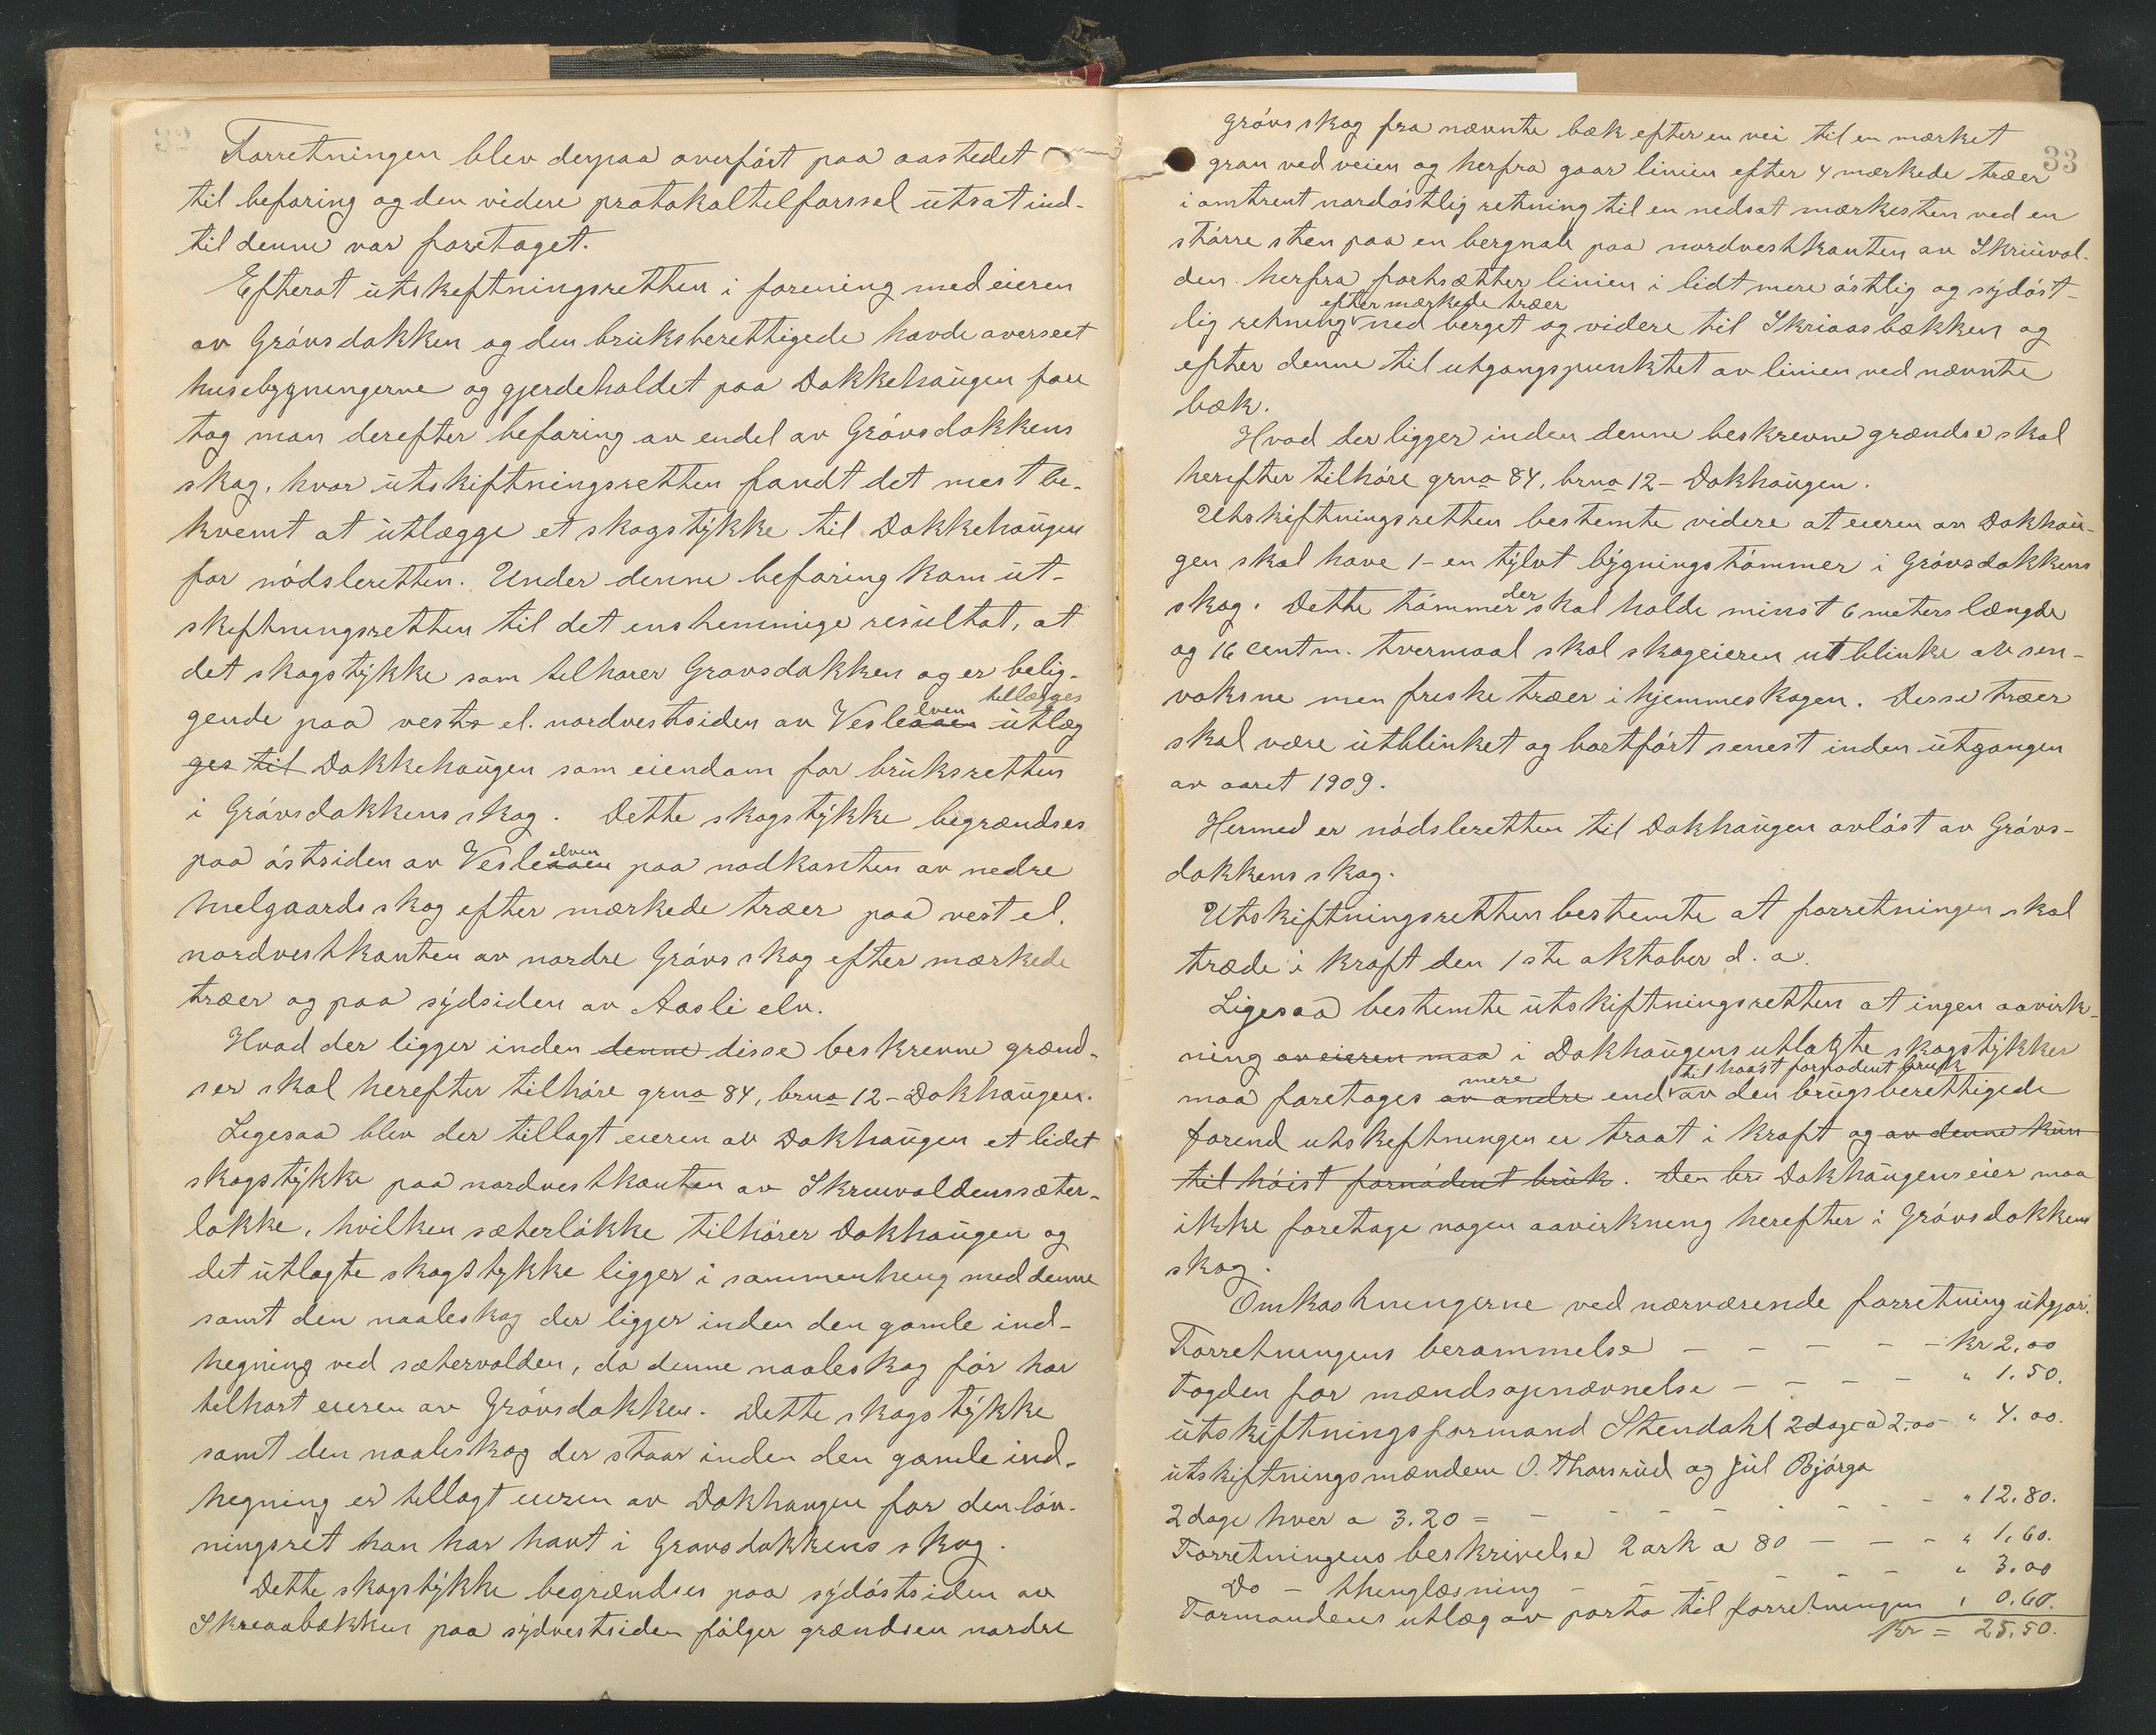 Forretningen blev derpaa overført paa aastedet
til befaring og den videre protokoltilførssel utsat ind-
til denne var foretaget.
Efterat utskiftningsretten i forening med eieren
av Grøvsdokken og den bruksberettigede havde overseet
husebygningerne og gjerdeholdet paa Dokkehaugen fore
tog man derefter befaring av endel av Grøvsdokkens
skog, hvor utskiftningsretten fandt det mest be-
kvemt at utlægge et skogstykke til Dokkehaugen
for nødsleretten. Under denne befaring kom ut-
skiftningsretten til det enstemmige resultat, at
det skogstykke som tilhører Grøvsdokken og er belig-
gende paa vests el. nordvestsiden av Vesleaaen elven utlæg tillægges
ges til Dokkehaugen som eiendom for bruksretten
i Grøvsdokkens skog. Dette skogstykke begrændses
paa østsiden av Vesleaaen elven paa nodkanten av nedre
Melgaards skog efter mærkede træer paa vest el.
nordvestkanten av nordre Grøvs skog efter mærkede
træer og paa sydsiden av Aasli elv.
Hvad der ligger inden denne disse beskrevne grænd-
ser skal herefter tilhøre grno 84, brno 12 - Dokhaugen.
Ligesaa blev der tillagt eieren av Dokhaugen et lidet
skogstykke paa nordvestkanten av Skriuvoldenssæter-
løkke, hvilken sæterløkke tilhører Dokhaugen og
det utlagte skogstykke ligger i sammenheng med denne
samt den naaleskog der ligger inden den gamle ind-
hegning ved sætervolden, da denne naaleskog før har
tilhørt eieren av Grøvsdokken. Dette skogstykke
samt den naaleskog der staar inden den gamle ind-
hegning er tillagt eieren av Dokhaugen for den løv-
ningsret han har havt i Grøvsdokkens skog.
Dette skogstykke begrændses paa sydøstsiden av
Skreaabækken paa sydvestsiden følger grændsen nordre
33
grøvs skog fra nævnte bæk efter en vei til en mærket
gran ved veien og herfra gaar linien efter 4 mærkede træer
i omtrent nordøstlig retning til en nedsat mærkesten ved en
større sten paa en bergnab paa nordvestkanten av Skriuvol-
den herfra fortsætter linien i lidt mere østlig og sydøst-
efter mærkede træer
lig retning ned berget og videre til Skriaasbækken og
efter denne til utgangspunktet av linien ved nævnte
bæk.
Hvad der ligger inden denne beskrevne grændse skal
herefter tilhøre grno 84, brno 12 - Dokhaugen.
Utskiftningsretten bestemte videre at eieren av Dokhau-
gen skal have 1 - en tylvt bygningstømmer i Grøvsdokkens
skog. Dette tømmer der skal holde minst 6 meters længde
og 16 centm. tvermaal skal skogeieren utblinke av sen-
voksne men friske træer i hjemmeskogen. Disse træer
skal være utblinket og bortført senest inden utgangen
av aaret 1909.
Hermed er nødsleretten til Dokhaugen avløst av Grøvs-
dokkens skog.
Utskiftningsretten bestemte at forretningen skal
træde i kraft den 1ste oktober d. a.
Ligesaa bestemte utskiftningsretten at ingen aavirk-
ning av eieren maa i Dokhaugens utlagte skogstykker
mere til høist fornødent bruk
maa foretages av andre end av den brugsberettigede
førend utskiftningen er traat i kraft og av denne kun
til høist fornødent bruk. Den br Dokhaugens eier maa
ikke foretage nogen aavirkning herefter i Grøvsdokkens
skog.
Omkostningerne ved nærværende forretning utgjør:
Forretningens berammelse - - - - - kr 2.00
Fogden for mændsopnævnelse - - - - " 1.50.
utskiftningsformand Stendahl 2 dage a 2.00 - " 4.00.
utskiftningsmændene O. Thorsrud og Jul Bjørge
2 dage hver a 3.20 = - - - - - - - - " 12.80.
Forretningens beskrivelse 2 ark a 80 - - - " 1.60.
Do - thinglæsning - - - - - - " 3.00
Formandens utlæg av porto til forretningen " 0.60.
Kr = 25.50.